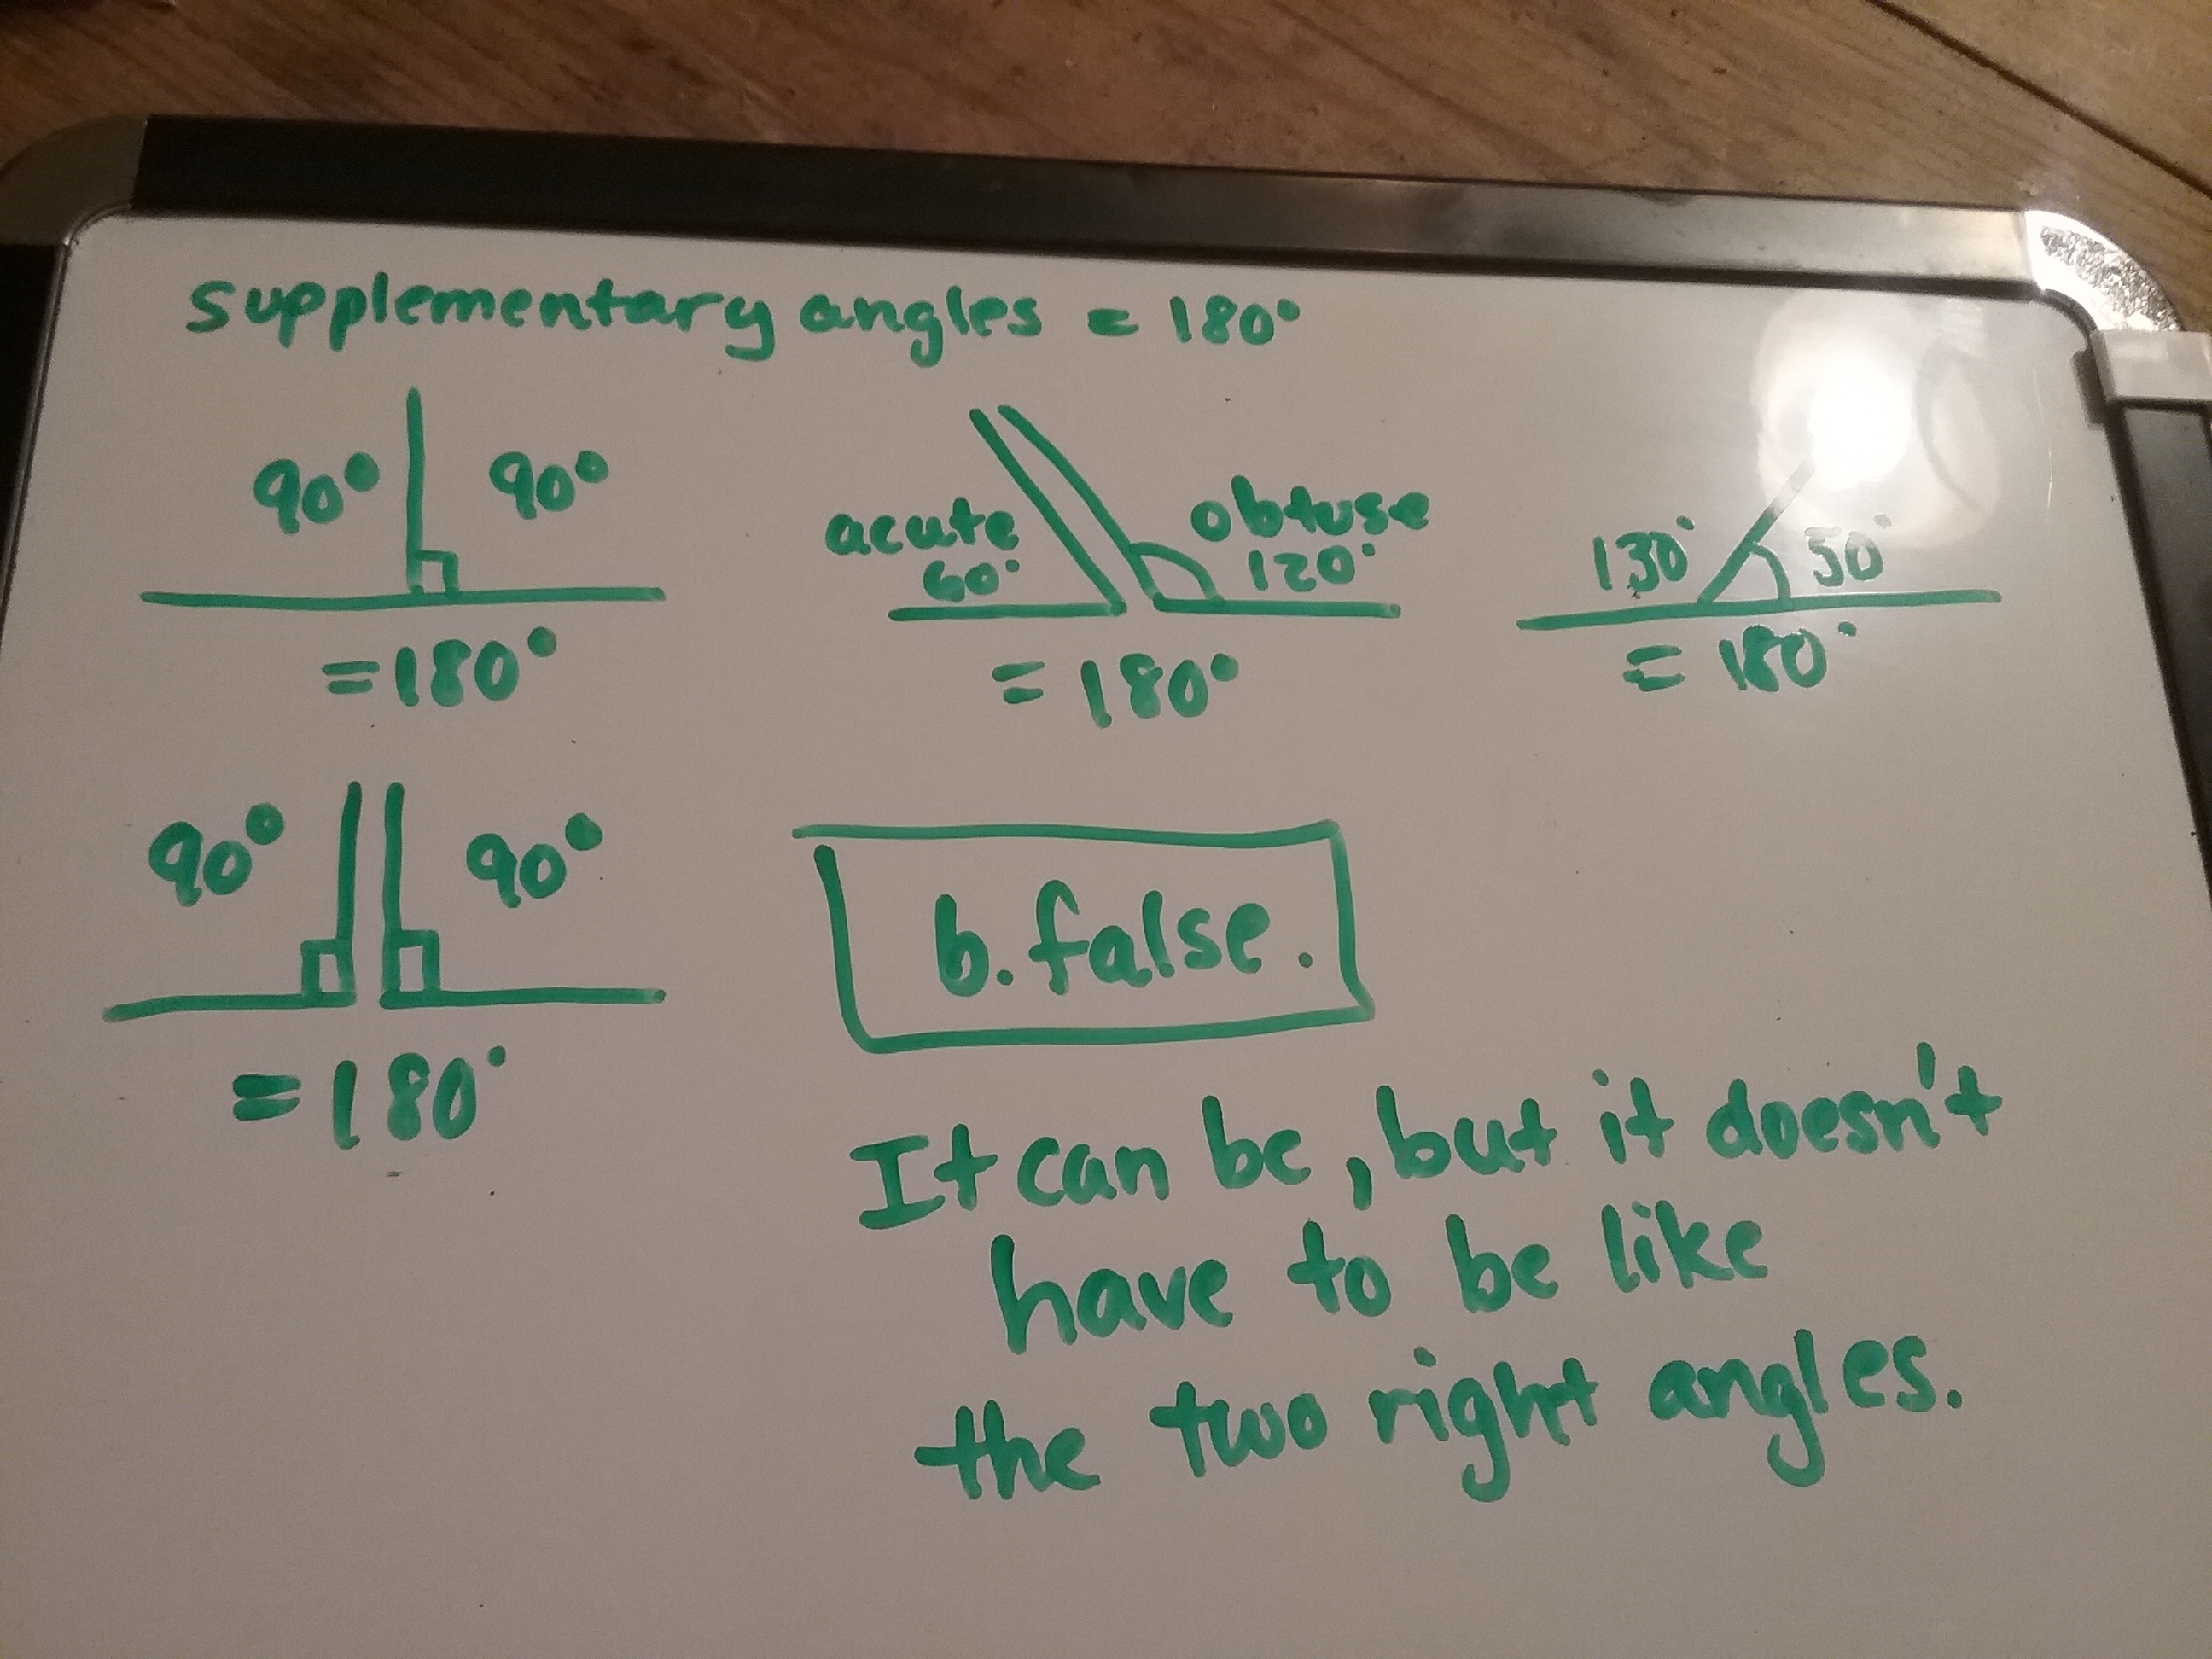 supplementary angles = 180°
90° 90°
= 180°
acute 60° obtuse 120°
= 180°
130° 50°
= 180°
90° 90°
= 180°
b. false.
It can be, but it doesn't
have to be like
the two right angles.